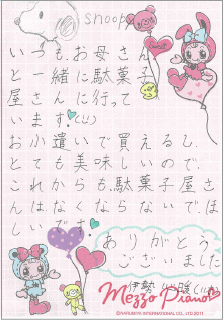 snoopy
いつもお母さん
と一緒に駄菓子
屋さんに行って
います!
お小遣いで買えるし、
とても美味しいので、
これからも駄菓子屋さ
んはなくならないで、ほ
しいです
ありがとう
ございました
Mezzo Piano
©NARUMIYA INTERNATIONAL CO., LTD. 2011